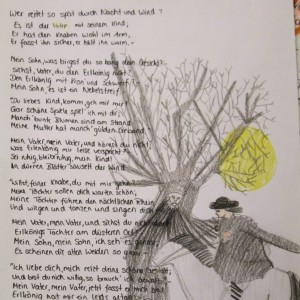 Wer reitet so spät durch Nacht und Wind?
Es ist der Vater mit seinem Kind;
Er hat den Knaben wohl in dem Arm,
Er fasst ihn sicher, er hält ihn warm. -
Mein Sohn, was birgst du so bang dein Gesicht?
Siehst, Vater, du den Erlkönig nicht?
Den Erlkönig mit Kron und Schweif?
Mein Sohn, es ist ein Nebelstreif
Du liebes Kind, komm, geh mit mir!
Gar schöne Spiele spiel ich mit dir;
Manch bunte Blumen sind am Strand
Meine Mutter hat manch gülden
Mein Vater, mein Vater, und hörest du nicht,
Was Erlenkönig mir leise verspricht?
Sei ruhig, bleibe ruhig, mein Kind!
In dürren Blättern säuselt der Wind
Willst, feiner Knabe, du mit mir gehn?
Meine Töchter sollen dich warten schön;
Meine Töchter führen den nächtlichen Reihn
Und wiegen und tanzen und singen dich
Mein Vater, mein Vater, und siehst du nicht dort
Erlkönigs Töchter am düsteren Ort?
Mein Sohn, mein Sohn, ich seh es genau:
Es scheinen die alten Weiden so grau. -
"Ich liebe dich, mich reizt deine schöne Gestalt;
und bist du nicht willig, so brauch ich Gewalt."
Mein Vater, mein Vater, jetzt fasst er mich an!
Erlkönig hat mir ein Leids getan